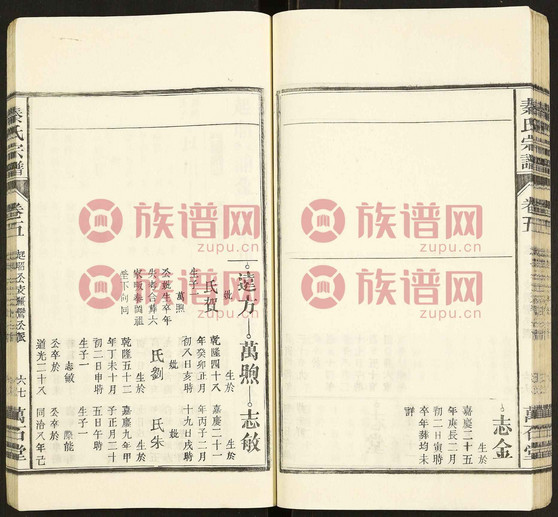 秦氏宗譜
卷五
志金
生於
嘉慶二十五
年庚辰二月
初二日寅時
卒年葬均未
詳
萬石堂
達方
萬煦
志敏
妣
氏賀
生子一
萬煦
公妣生卒年
生於
乾隆四十八
年癸卯正月
初八日亥時
妣
氏劉
生於
乾隆五十二
年丁未十月
初二日申時
生子一
志敏
公卒於
道光二十八
生於
嘉慶二十一
年丙子二月
十九日戌時
妣
氏朱
生於
嘉慶九年甲
子正月二十
五日午時
生子一
公卒於
同治八年己
秦氏宗譜
卷五
六七
萬石堂
族谱网
zupu.cn
族谱网
zupu.cn
族谱网
zupu.cn
族谱网
zupu.cn